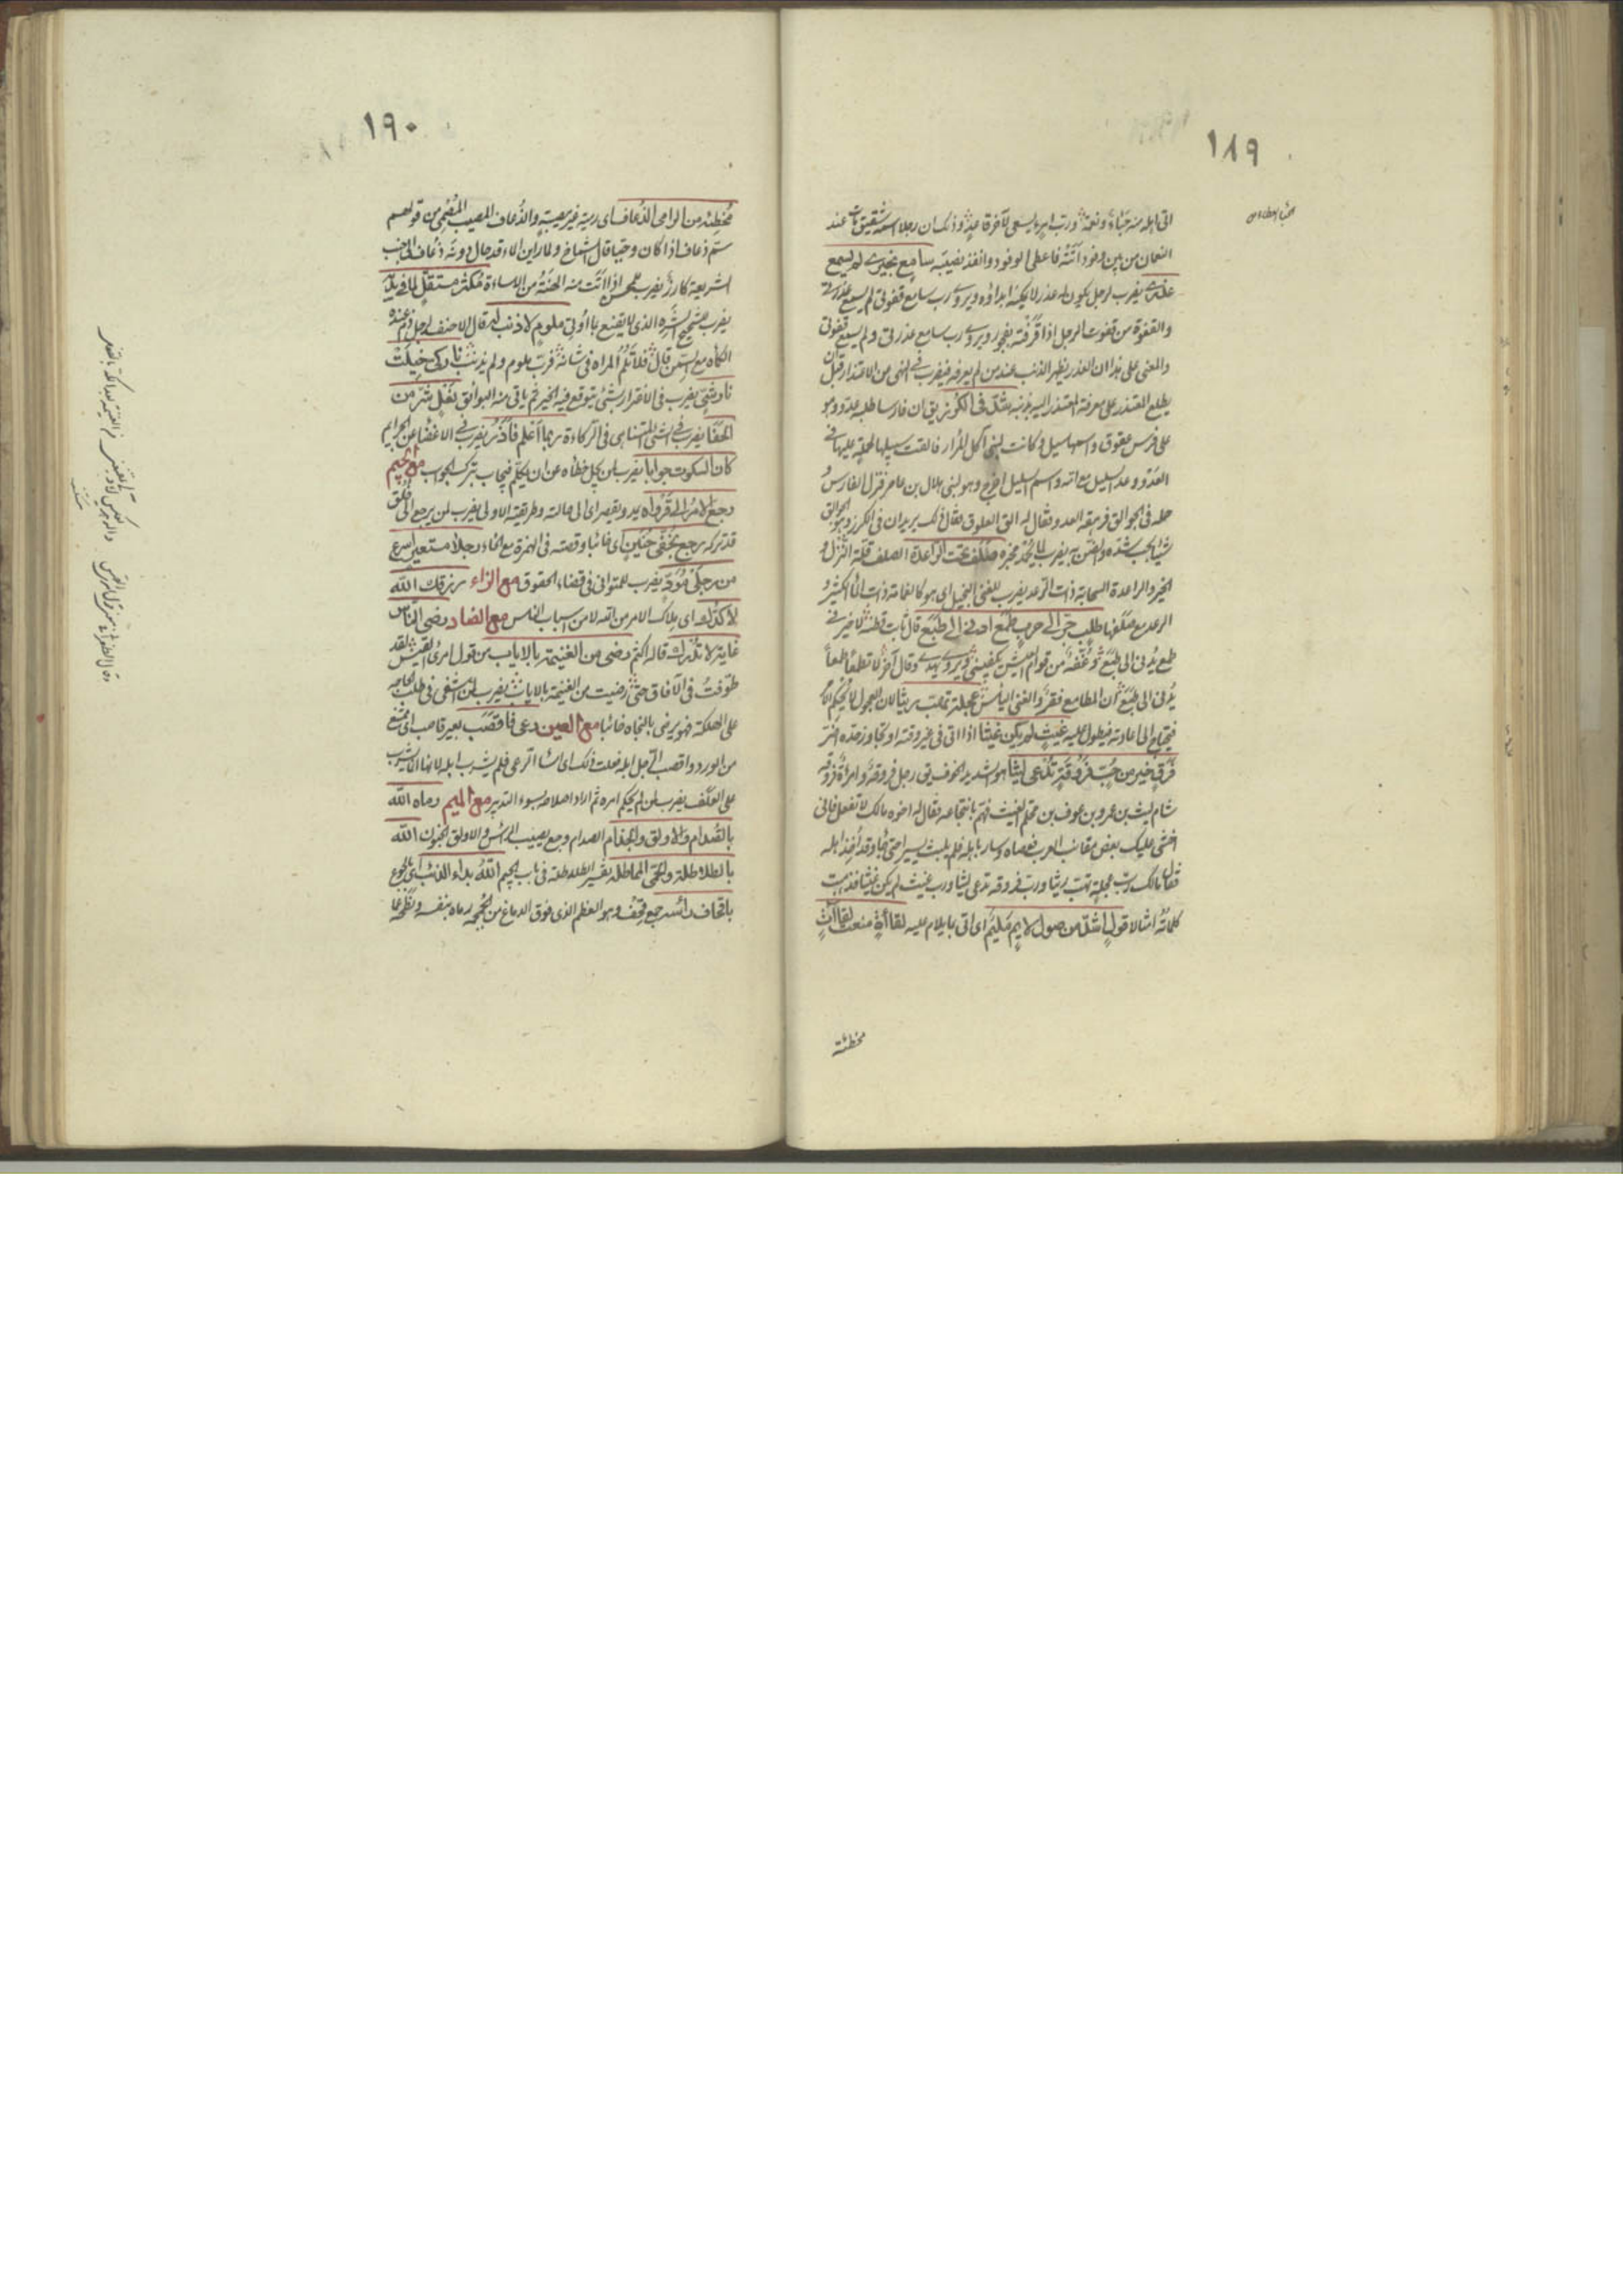 ١٨٩
النعمان من بين وفود اتته فاعطى الوفود وانفذ نصيبه سامع بخبري لم يسمع
عذري يضرب لرجل يكون له عذر لا يمكنه ابداؤه ويروى رب سامع قفوتي لم يسمع عذرتي
والقفوة من قفوت الرجل اذا قرفته بفجور ويروى رب سامع عذرتي ولم يسمع قفوتي
والمعنى على هذا ان العذر يظهر الذنب عند من لم يعرفه فيضرب في النهي من الاعتذار قبل ان
يطلع المعتذر على معرفة المعتذر اليه بذنبه شد في الكرز يق ان فارسا طلبه عدو وهو
على فرس عقوق
العدو وعد السليل مع امه واسم السليل اعوج وهو لبني هلال بن عامر فنزل الفارس و
حمله في الجوالق فرهقه العدو وقال له الق الفلو فقال ذلك يريد ان في الكرز وهو الجوالق
صلف تحت الراعدة الصلف قلة النزل و
الخير والراعدة السحابة ذات الرعد يضرب للغني البخيل اى هو كالغمامة ذات الماء الكثير و
الرعد مع صلفها طلب جر الى حرب طمع ادنى الى طبع قال ثابت قطنة لا خير في
طمع يدنى الى طبع وغفة من قوام العيش يكفيني ويروى يهدى وقال آخر لا تطمعا طمعا
يدنى الى طبع ان المطامع فقر والغنى الياس عجلة تهب ريثا لان العجول لا يحكم الامر
فيحتاج الى اعادته فيطول عليه غيث لم يكن غيثا اذا اتى في غير وقته او تجاوز حده اضر
فرق خير من حب فروقة تدعى ليثا هو الشديد الخوف يق رجل فروقة وامرأة فروقة
شام ليث بن عمرو بن عوف بن محلم الغيث فهم بانتجاعه فقال له اخوه مالك لا تفعل فانى
اخشى عليك بعض مقانب العرب فعصاه وسار باهله فلم يلبث يسيرا حتى جاء وقد اخذ اهله
فقال مالك رب عجلة تهب ريثا ورب فروقة تدعى ليثا ورب غيث لم يكن غيثا فذهبت
كلماته امثالا قول اشد من صول لايم مليم اى اتى بما يلام عليه لقاءة منعت لقاآت
مخطئة
١٩٠
مخطئة من الرامى الذعاف اى رمية غير مصيبة والذعاف المصيب المصمى من قولهم
سم ذعاف اذا كان وحيا قال الشماخ ولما راين الماء قد حال دونه ذعاف الى جنب
الشريعة كارز يضرب لمحسن اذا اتت منه الهنة من الاساءة مكثر مستقل لما في يديه
يضرب للشحيح الشره الذى لا يقنع بما اوتى ملوم لا ذنب له قال الاحنف لرجل ذم عنده
الكمأة مع السمن قال فلا تلم المراه في شانه فرب ملوم ولم يذنب نار كى خيلت
نار شى يضرب في الاغترار بشئ يتوقع فيه الخير ثم ياتي منه البوائق نعل شر من
الحفا يضرب في الشئ المتناهى في الركاءة ربما اعلم فاذر يضرب في الاغضاء عن الجرايم
كان السكوت جوابا يضرب لمن يجل خطأه عن ان يكلم فيجاب بترك الجواب مع الجيم
رجع الامر الى قرواه يمد ويقصر اى الى حالته وطريقته الاولى يضرب لمن يرجع الى خلق
قد تركه رجع بخفى حنين اى خائبا وقصته في الهمزة مع الخاء رجلا مستعير اسرع
من رجلى مؤد يضرب للمتوانى في قضاء الحقوق مع الزاء رزقك الله
لا كدك اى ملاك الامر من الله لا من اسباب الناس مع الضاد رضى الناس
غاية لا تدرك قاله اكثم رضى من الغنيمة بالاياب من قول امرئ القيس لقد
طوفت في الآفاق حتى رضيت من الغنيمة بالاياب يضرب لمن اشفى في طلب الحاجة
على الهلكة فهو يرضى بالنجاة خائبا مع العين رعى فاقصب بعير قاصب اى ممتنع
من الورد واقصب الرجل ابله فعلت ذلك اى اساء الرعى فلم يشرب ابله لانها انما تشرب
على العلف يضرب لمن لم يحكم امره ثم اراد اصلاحه بسوء التدبير مع الميم رماه الله
بالصدام والاولق والجذام الصدام وجع يصيب الرأس والاولق الجنون الله
بالطلاطلة والحمى المماطلة تفسير الطلاطلة في باب الجيم الله بداء الذئب اى بالجوع
باقحاف رأسه جمع قحف وهو العظم الذى فوق الدماغ من الجمجمة رماه بنفسه ونطحه عما